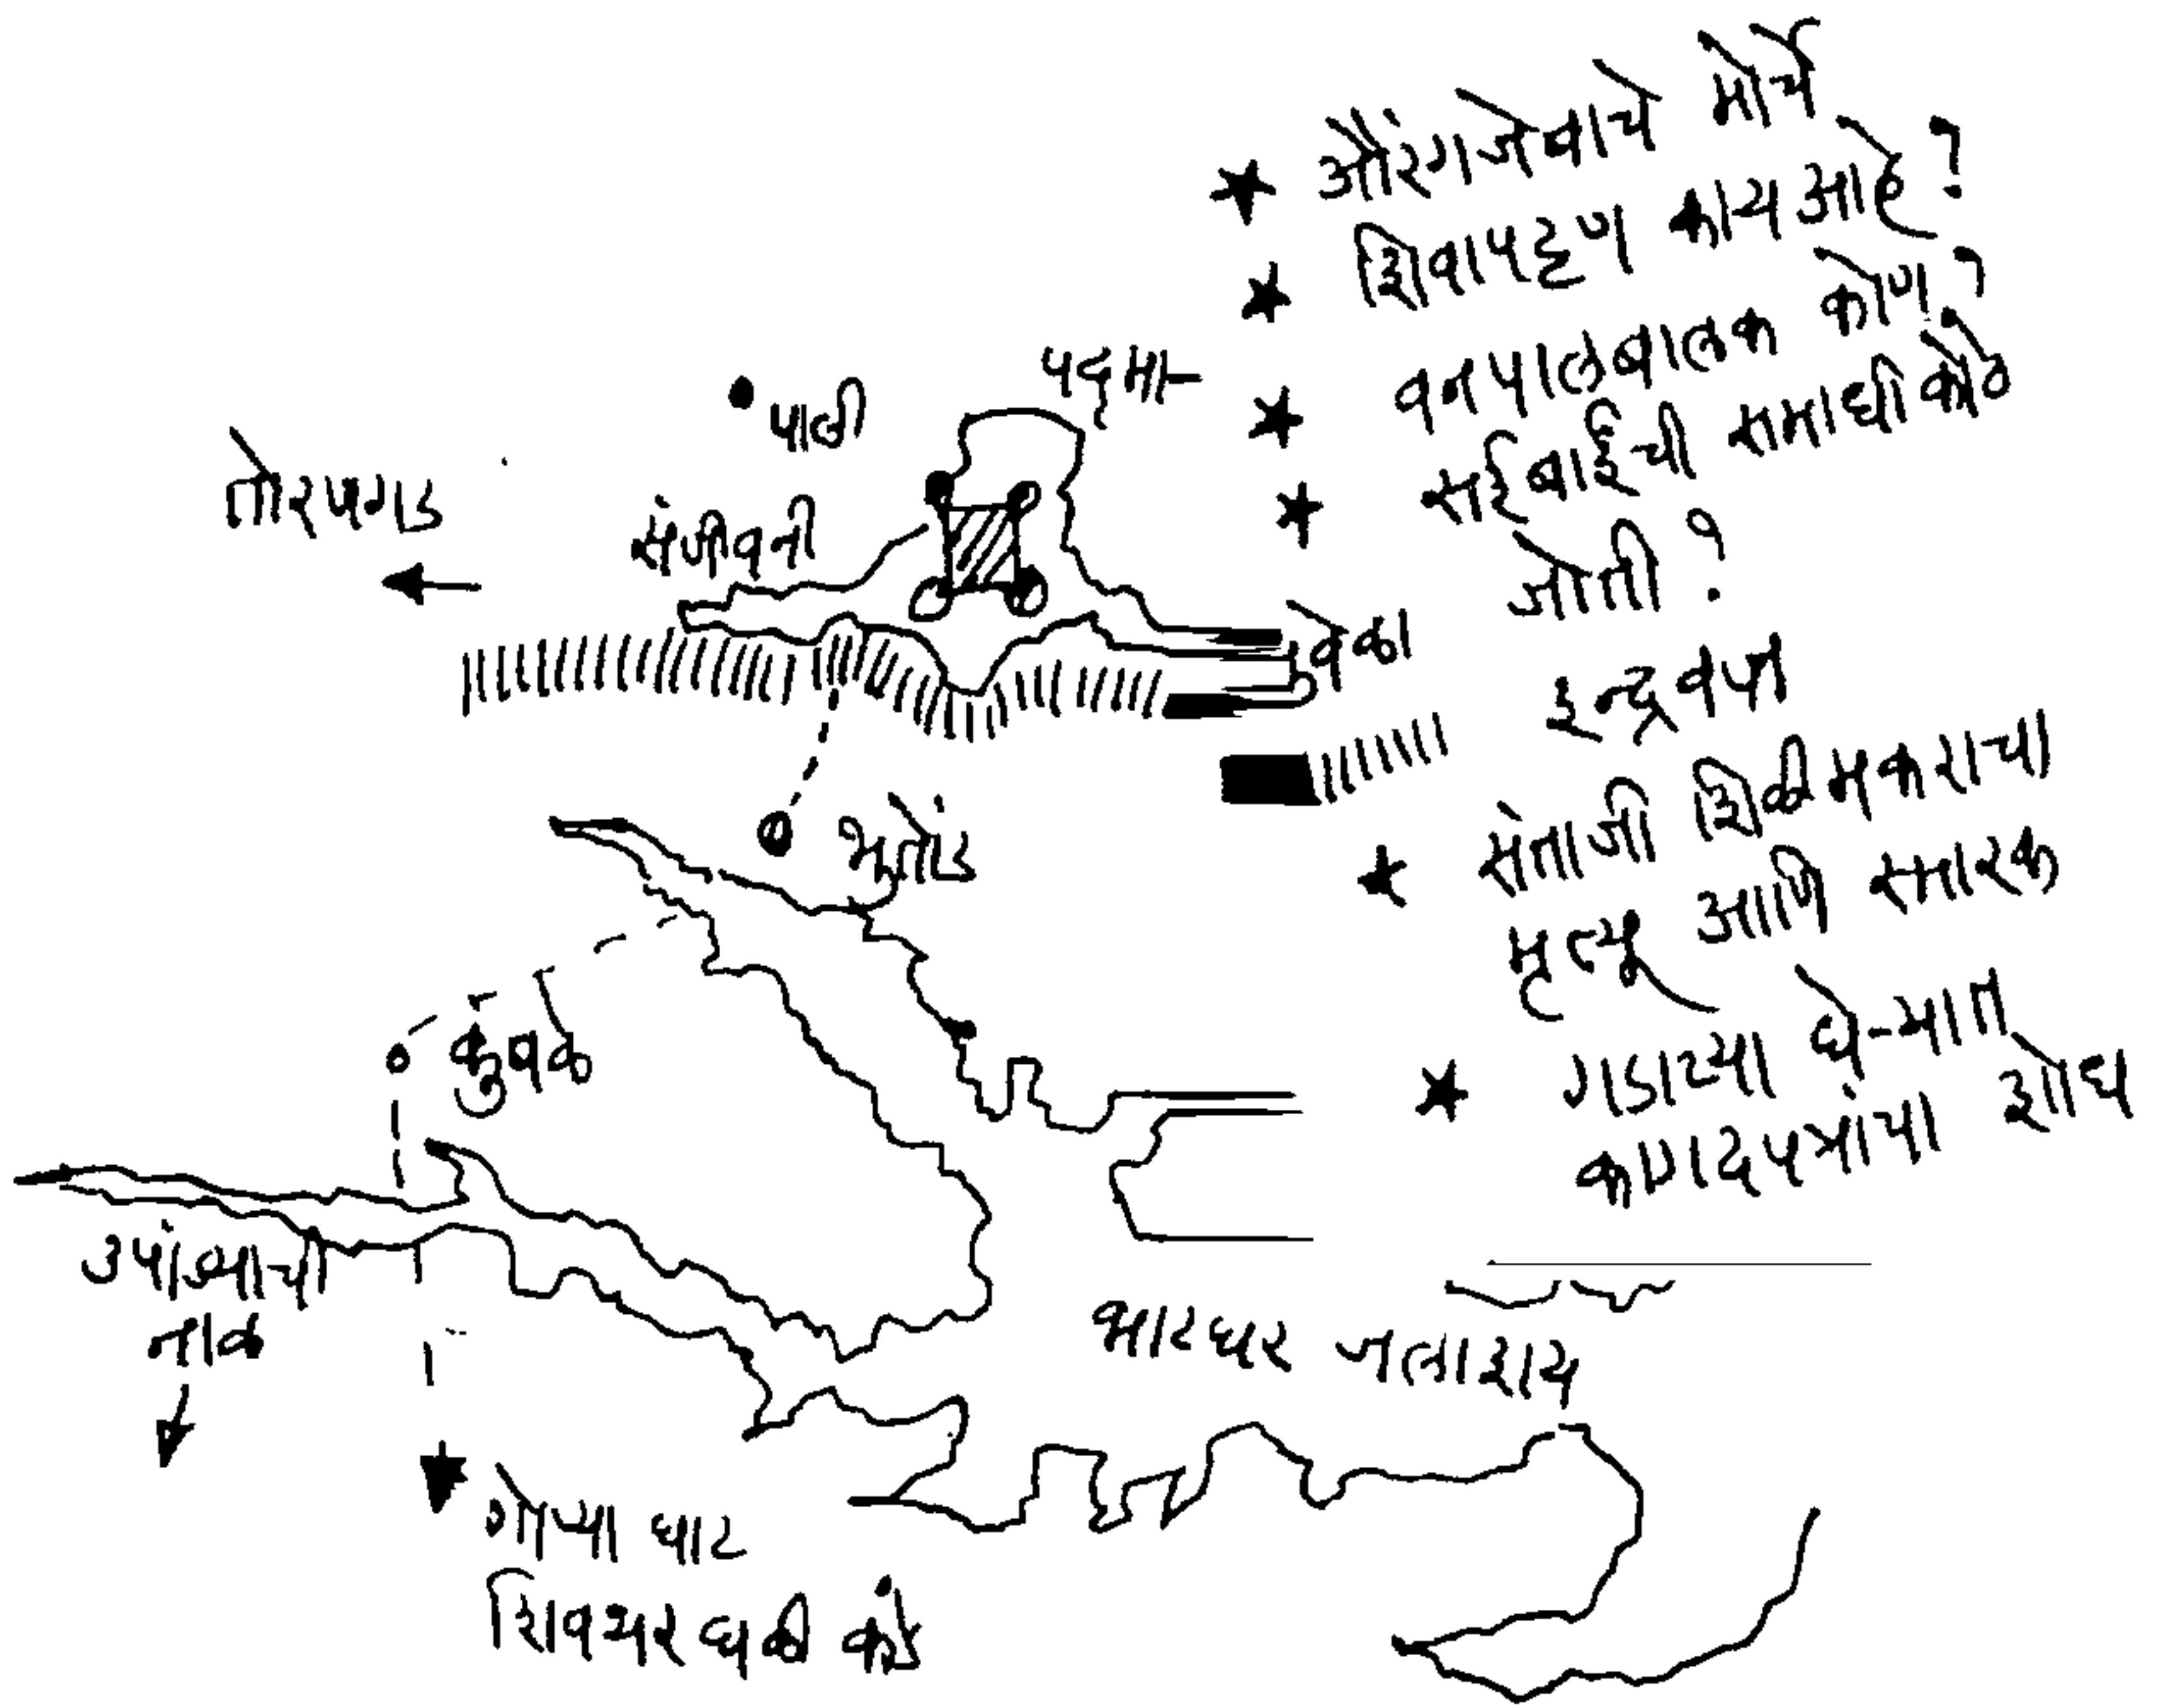 औरंगजेबाचे मोर्चे
शिवापट्टण काय आहे?
वनपालबालक कोण?
सईबाईची समाधी कोठे
होती?
इन्द्रवज्र
संताजी शिळीमकराचा
मृत्यू आणि स्मारक
गडाच्या घेऱ्यात
कागदपत्रांचा शोध
पद्मा
पाली
तोरणगड
संजीवनी
सुवेळा
भुतोंडे
कुंबळे
उपांड्याची
नाळ
भाटघर जलाशय
गोप्या घाट
शिवथर घळी कडे